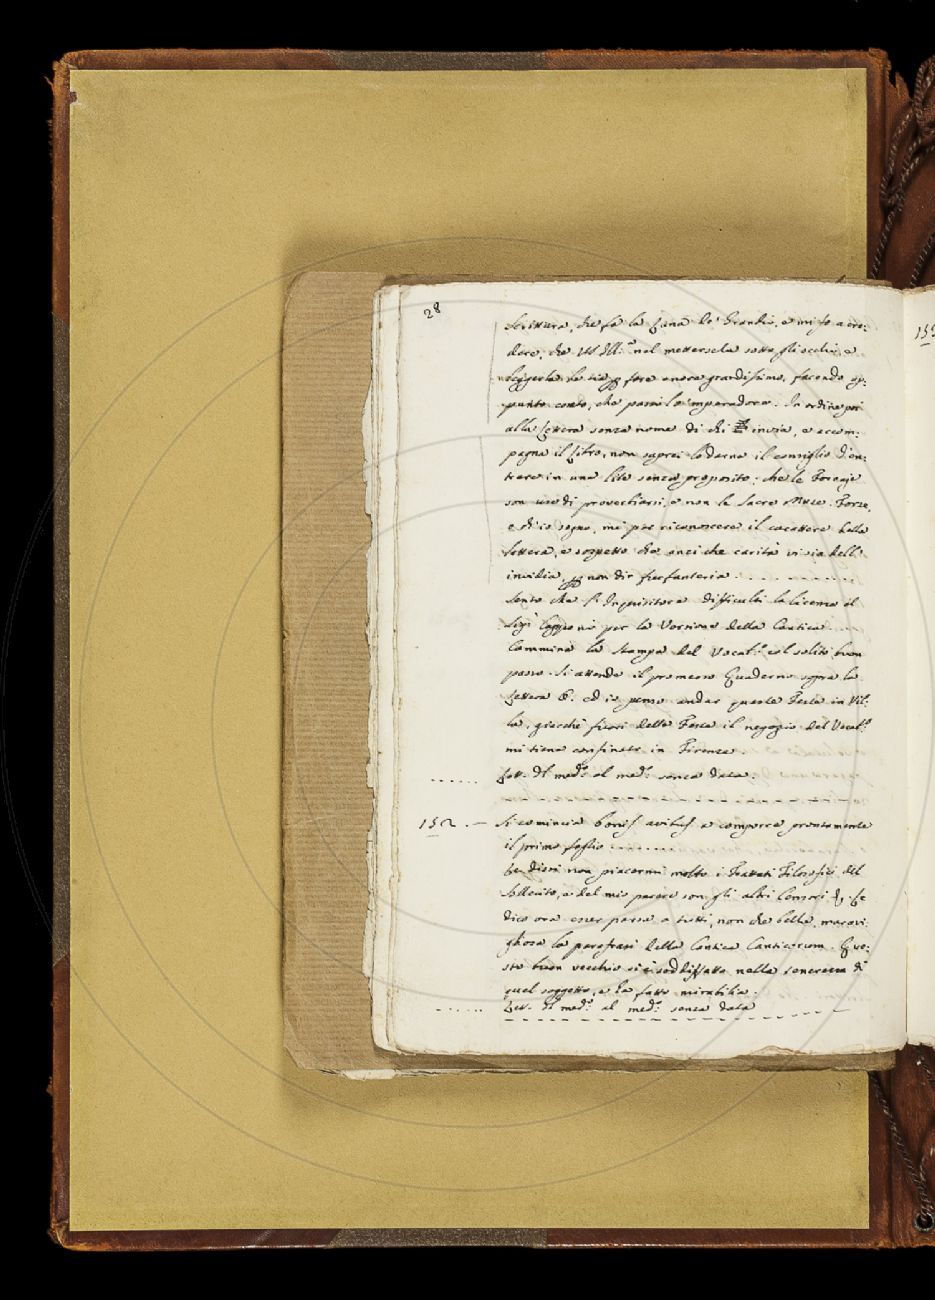 28
scrittura, che fà la Zana de' Grandis, e mi fo a cre:
dere, che nel mettersela sotto gli occhi, e
leggerla le sia p fare onore grandissimo, facendo ap:
punto conto, che passi lo'mperadore. In ordine poi
alla lettera senza nome di chi invia, e accom:
pagna il libro, non saprei lodarne il consiglio d'en:
trare in una lite senza proposito: che le Forcaje
son use di provechiarsi, e non le Sacre Muse. Forse,
e di ciò sogno, mi par riconoscere il carattere della
lettera, e sospetto che anzi che carità vi sia dell'
invidia, p non dir furfanteria ........
Sento che l'Inquisitore difficulti la licenza al
Sigr Capponi per la Versione della Cantica ....
Cammina la stampa del Vocab.o col solito buon
passo. Si attende il promesso Quaderno sopra la
lettera B. ed io penso andar queste Feste in Vil:
la, giacchè fuori delle Feste il negozio del Vocab.o
mi tiene confinato in Firenze.
...... Lett. del med.o al med.o senza data.
152. — Si comincia bonis avibus a comporre prontamente
il primo foglio ........
non piacermi molto i Trattati Filosofici del
Sollecito, e del mio parere son gli altri Censori
dico ora esser parsa a tutti, non che bella, maravi:
gliosa la parafrasi della Cantica Canticorum. Que:
sto buon vecchio si è soddisfatto nella tenerezza di
quel soggetto, e ha fatto mirabilia.
...... Lett. del med.o al med.o senza data
153